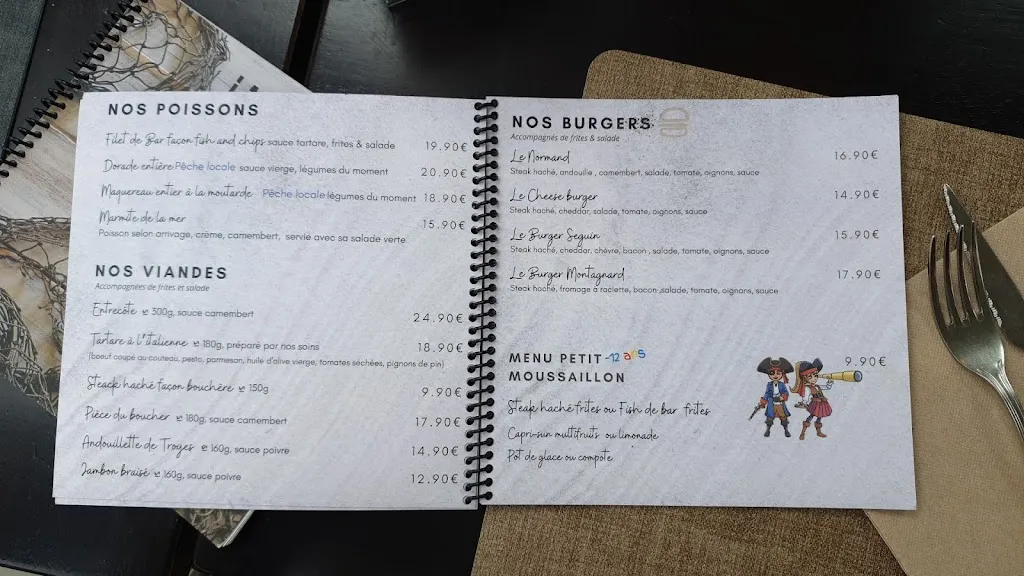 NOS POISSONS
Filet de Bar façon fish and chips sauce tartare, frites & salade 19.90€
Dorade entière Pêche locale sauce vierge, légumes du moment 20.90€
Maquereau entier à la moutarde Pêche locale légumes du moment 18.90€
Marmite de la mer 15.90€
Poisson selon arrivage, crème, camembert, servie avec sa salade verte
NOS VIANDES
Accompagnées de frites et salade
Entrecôte 300g, sauce camembert 24.90€
Tartare à l'italienne 180g, préparé par nos soins 18.90€
(boeuf coupé au couteau, pesto, parmesan, huile d'olive vierge, tomates séchées, pignons de pin)
Steack haché façon bouchère 150g 9.90€
Pièce du boucher 180g, sauce camembert 17.90€
Andouillette de Troyes 160g, sauce poivre 14.90€
Jambon braisé 160g, sauce poivre 12.90€
NOS BURGERS
Accompagnés de frites & salade
Le Normand 16.90€
Steak haché, andouille , camembert, salade, tomate, oignons, sauce
Le Cheese burger 14.90€
Steak haché, cheddar, salade, tomate, oignons, sauce
Le Burger Seguin 15.90€
Steak haché, cheddar, chèvre, bacon , salade, tomate, oignons, sauce
Le Burger Montagnard 17.90€
Steak haché, fromage à raclette, bacon ,salade, tomate, oignons, sauce
MENU PETIT -12 ans 9.90€
MOUSSAILLON
Steak haché frites ou Fish de bar frites
Capri-sun multifruits ou limonade
Pot de glace ou compote